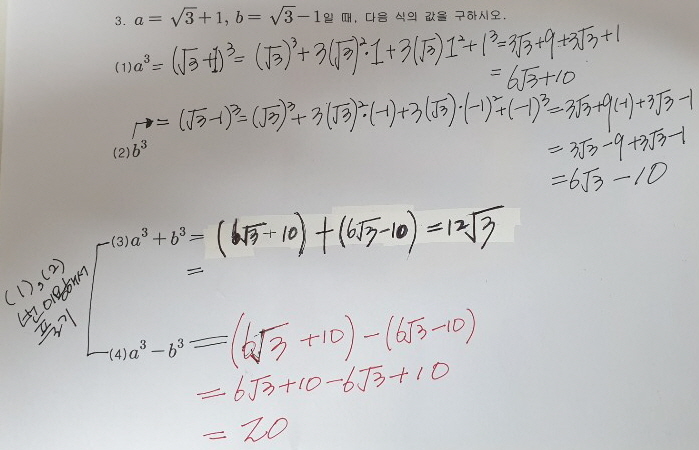 3. a = √3 + 1, b = √3 − 1일 때, 다음 식의 값을 구하시오.
(1) a³ = (√3 + 1)³ = (√3)³ + 3(√3)²·1 + 3(√3)1² + 1³ = 3√3 + 9 + 3√3 + 1
= 6√3 + 10
(2) b³ = (√3 − 1)³ = (√3)³ + 3(√3)²·(−1) + 3(√3)·(−1)² + (−1)³ = 3√3 + 9(−1) + 3√3 − 1
= 3√3 − 9 + 3√3 − 1
= 6√3 − 10
(3) a³ + b³ = (6√3 + 10) + (6√3 − 10) = 12√3
=
(1), (2)
번 이용해서
풀기
(4) a³ − b³ = (6√3 + 10) − (6√3 − 10)
= 6√3 + 10 − 6√3 + 10
= 20